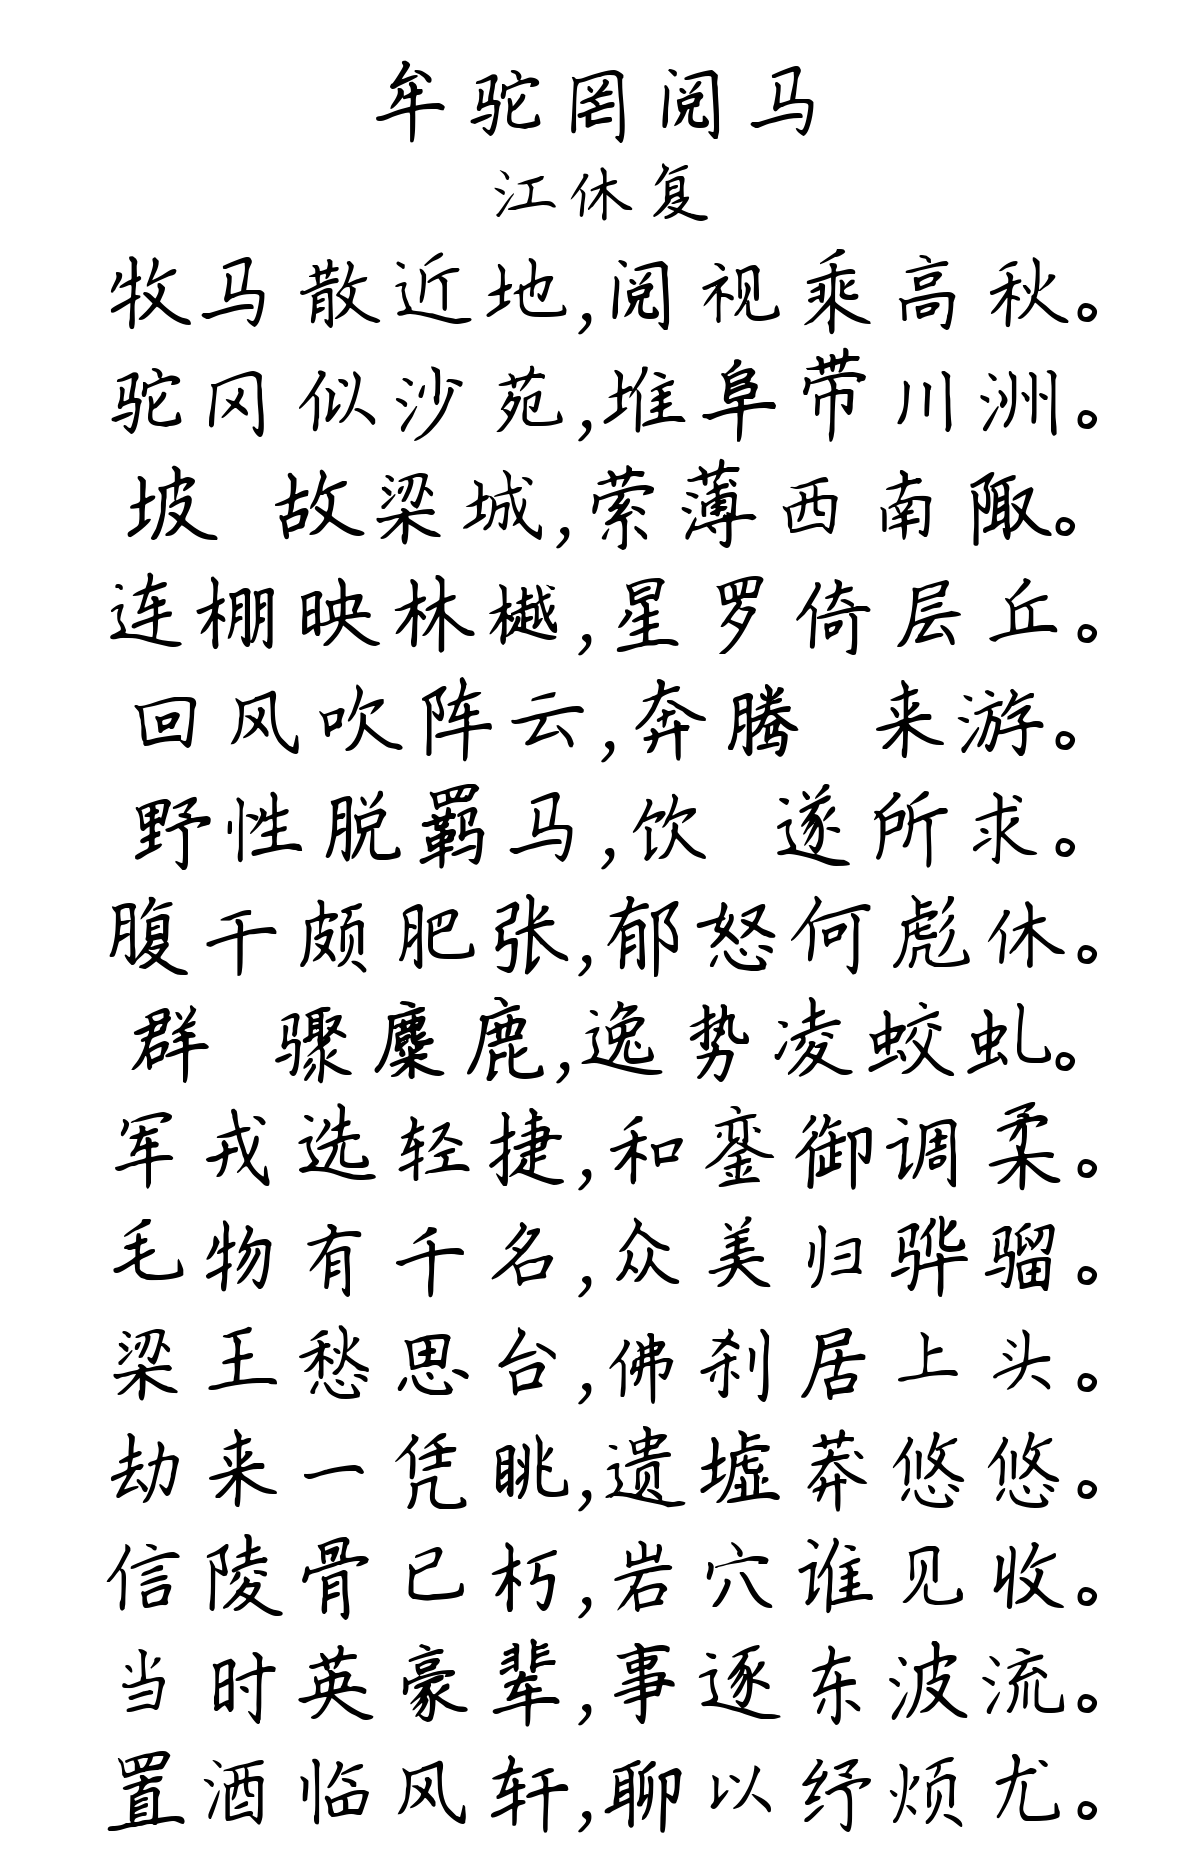 牟驼罔阅马
江休复
牧马散近地,阅视乘高秋。
驼冈似沙苑,堆阜带川洲。
坡 故梁城,萦薄西南陬。
连棚映林樾,星罗倚层丘。
回风吹阵云,奔腾 来游。
野性脱羁马,饮 遂所求。
腹干颇肥张,郁怒何彪休。
群 骤麋鹿,逸势凌蛟虬。
军戎选轻捷,和銮御调柔。
毛物有千名,众美归骅骝。
梁王愁思台,佛刹居上头。
劫来一凭眺,遗墟莽悠悠。
信陵骨已朽,岩穴谁见收。
当时英豪辈,事逐东波流。
置酒临风轩,聊以纾烦尤。